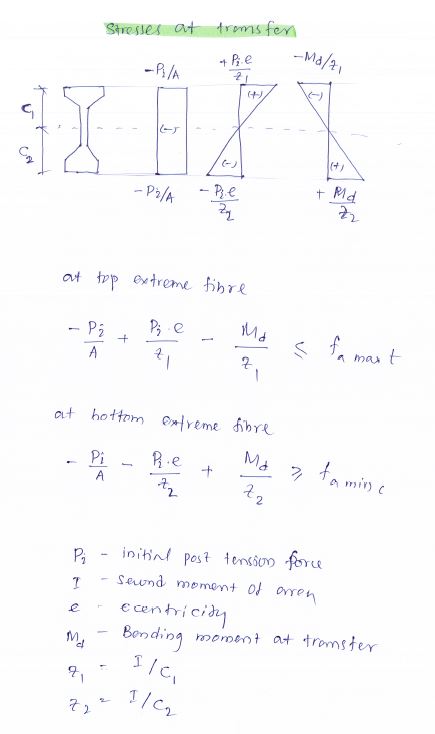 Stresses at transfer
-Pi/A + Pi.e/Z1 -Md/Z1
C1 (+) (-)
(-)
C2 (-) (+)
-Pi/A - Pi.e/Z2 + Md/Z2
at top extreme fibre
- Pi/A + Pi.e/Z1 - Md/Z1 ≤ fa max t
at bottom extreme fibre
- Pi/A - Pi.e/Z2 + Md/Z2 ≥ fa min c
Pi - initial post tension force
I - second moment of area
e - eccentricity
Md - Bending moment at transfer
Z1 = I/C1
Z2 = I/C2